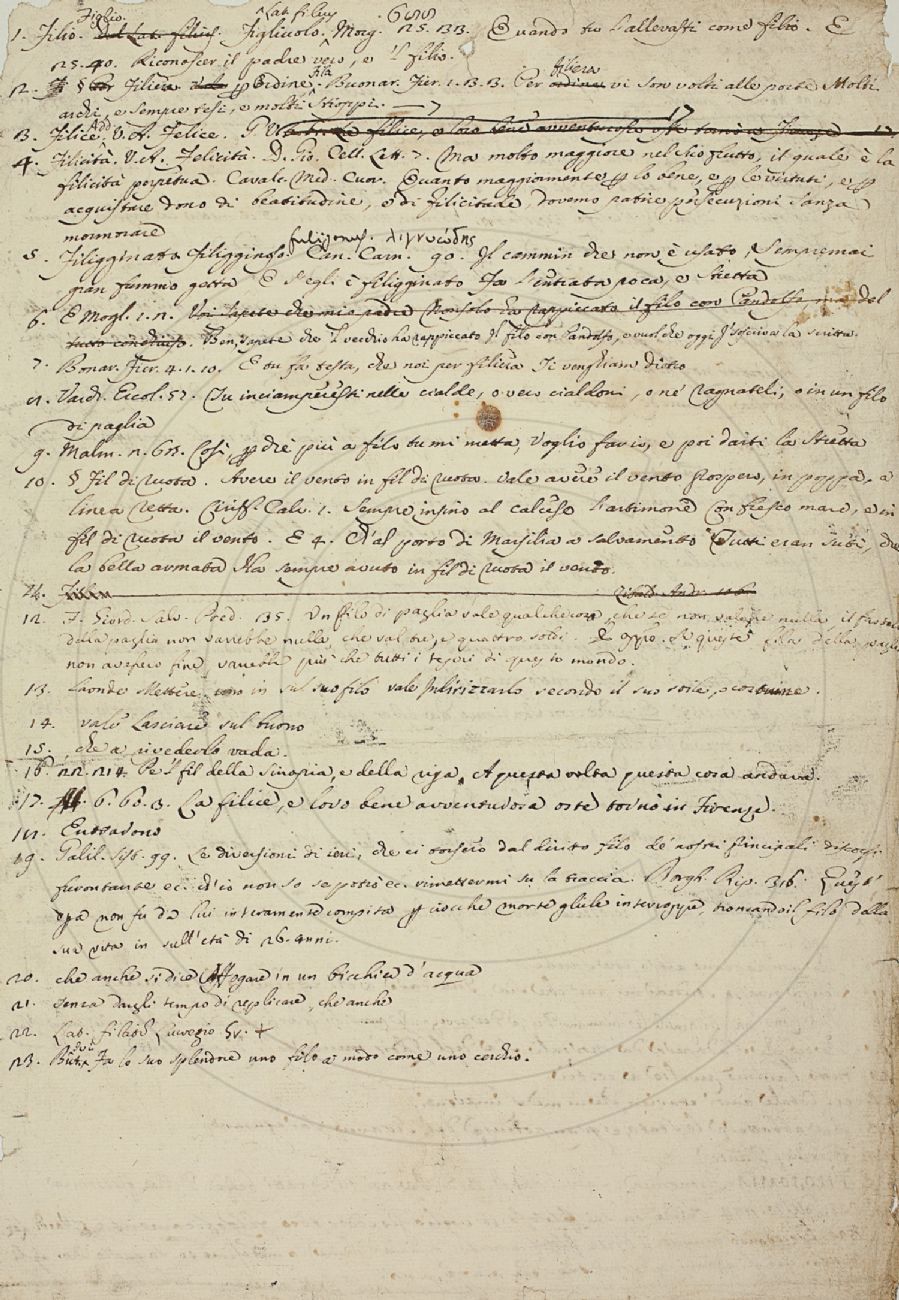 1. Filio. Figlio. Lat. filius. Figliuolo. Morg. 25. 133. Quando tu l'allevasti come filio. E
25. 40. Riconoscer il padre vero, e 'l filio.
2. § Ordine, fila. Buonar. Fier. 1. 3. 3. Per filiera vi son volti alle poste Molti
archi, e sempre tesi, e molti stioppi.
3. Filice. V. A. Felice. G. V.
4. Filicità. V. A. Felicità. D. Gio. Cell. Lett. 7. Ma molto maggiore nel suo frutto, il quale è la
filicità perpetua. Cavalc. Med. Cuor. Quanto maggiormente per lo bene, e per le virtuti, e per
acquistare dono di beatitudine, e di filicitade, dovemo patire persecuzioni sanza
mormorare
5. Filigginato Filigginoso. fuliginosus. λιγνυώδης Can. Carn. 90. Il cammin che non è usato, Sempremai
gran fummo getta E s'egli è filigginato Fa l'entrata poca, e stretta
6. E Mogl. 1. Voi sapete che mio padre Non solo ha rappiccato il filo con Pandolfo, ma del
tutto conchiuso. Ben sapete che 'l vecchio ha rappiccato il filo con Pandolfo, e vuol che oggi si scriva la scritta
7. Bonar. Fier. 4. 1. 10. E tu fa testa, che noi per filiera Ti venghiam dietro
8. Varch. Ercol. 52. Tu inciamperesti nelle cialde, o vero cialdoni, o ne' ragnateli, o in un filo
di paglia
9. Malm. Così, perchè più a filo tu mi metta, Voglio farlo, e poi darti la stretta
10. § Fil di ruota. Avere il vento in fil di ruota. vale avere il vento prospero, in poppa, a
linea retta. Ciriff. Calv. 1. Sempre insino al calcese l'artimone Con fresco mare, e in
fil di ruota il vento. E 4. Ch'al porto di Marsilia a salvamento Tutti eran surti, che
la bella armata Ha sempre avuto in fil di ruota il vento.
12. F. Giord. Salv. Pred. 135. Un filo di paglia vale qualche cosa, che se non valesse nulla il fascio
della paglia non varrebbe nulla, che val tre, e quattro soldi. E appo. Se queste fila della paglia
non avessero fine, varrebbe più che tutti i tesori di questo mondo.
13. Laonde Mettere uno in sul suo filo vale Indirizzarlo secondo il suo stile, o costume.
14. vale Lasciare sul buono
15. che a rivederlo vada.
16. 22. 214. Pe 'l fil della sinopia, e della riga, A questa volta questa cosa andava.
17. 6. 60. 3. La filice, e loro bene avventurosa oste tornò in Firenze.
18. Entrarono
19. Galil. Sist. 99. Le diversioni di ieri, che ci torsero dal diritto filo de' nostri principali discorsi
furon tante ec. ch'io non so se potrò ec. rimettermi su la traccia. Borgh. Rip. 316. Quest'
opra non fu da lui interamente compita per ciocchè morte gliele interroppe, troncando il filo della
sua vita in sull'età di 26. anni.
20. che anche si dice Affogare in un bicchier d'acqua
21. senza dargli tempo di replicare, che anche
22. Lat. filatim Lucrezio
23. But. Fa lo suo splendore uno filo a modo come uno cerchio.